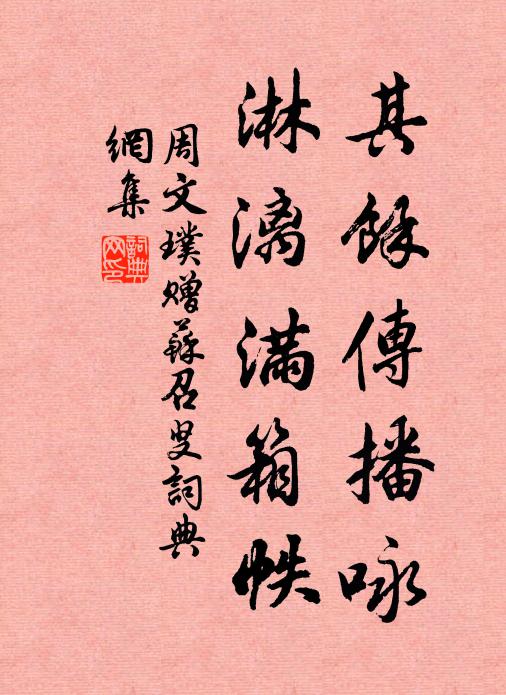 其餘傳播咏
淋漓滿箱帙
周文璞贈蘇召叟詞典
網集
詞典
网印